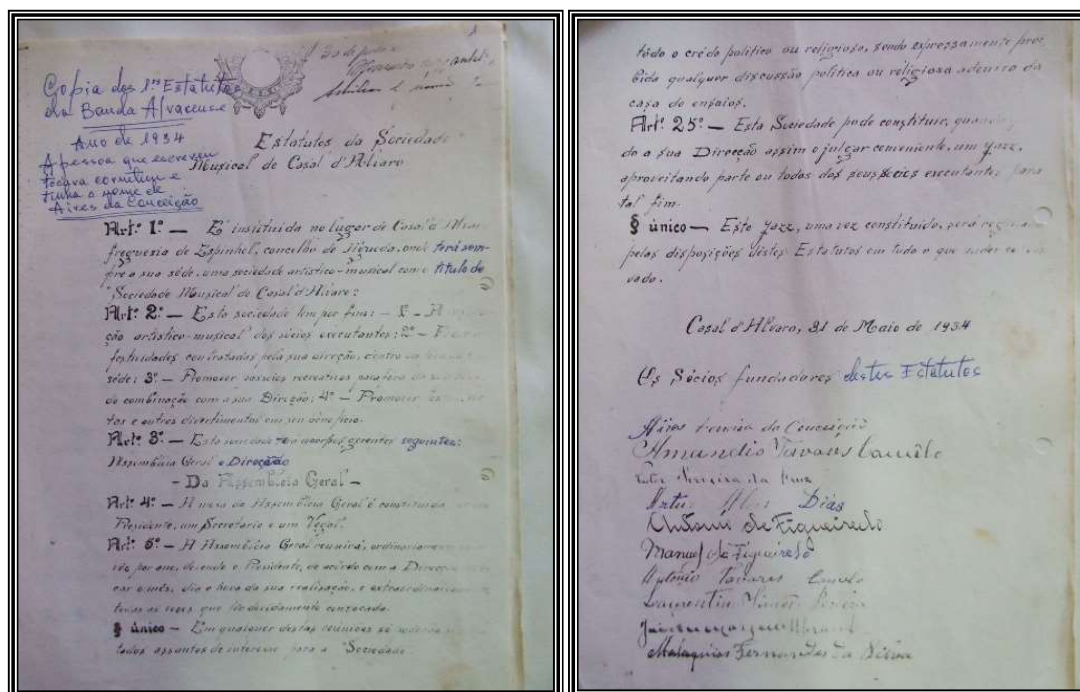 1
Copia dos 1ºs Estatutos
da Banda Alvarense
Ano de 1934
A pessoa que escreveu
tocava cornetim e
tinha o nome de
Aires da Conceição
Estatutos da Sociedade
Musical de Casal d'Alvaro
Artº 1º — É instituida no lugar de Casal d'Alvaro
freguesia de Espinhel, concelho de Águeda, onde terá sem-
pre a sua séde, uma sociedade artistico-musical com o titulo de
"Sociedade Musical de Casal d'Alvaro:
Artº 2º — Esta sociedade tem por fins: — 1º —
ção artistico-musical dos sócios executantes; 2º —
festividades contratadas pela sua direção, dentro
séde; 3º — Promover passeios recreativos para fora da
de combinação com a sua Direcção; 4º — Promover
tos e outros divertimentos em seu beneficio.
Artº 3º — Esta sociedade terá corpos gerentes seguintes:
Assembleia Geral e Direcção
– Da Assembleia Geral –
Artº 4º — A mesa da Assembleia Geral é constituida
Presidente, um Secretário e um Vogal.
Artº 5º — A Assembleia Geral reunirá, ordinariamente
vez por ano, devendo o Presidente, de acôrdo com a Direcção
car o mês, dia e hora da sua realização, e extraordinariamente
todas as vezes que fôr devidamente convocada.
§ único — Em qualquer destas reuniões só
todos assuntos de interesse para a "Sociedade
todo o crédo politico ou religioso, sendo expressamente proi-
bido qualquer discussão politica ou religiosa adentro da
casa de ensaios.
Artº 25º — Esta Sociedade pode constituir, quando
do a sua Direcção assim o julgar conveniente, um yazz,
aproveitando parte ou todos dos seus sócios executantes para
tal fim.
§ único — Este yazz, uma vez constituido, será regulado
pelas disposições dêstes Estatutos em tudo o que
vado.
Casal d'Alvaro, 31 de Maio de 1934
Os Sócios fundadores destes Estatutos
Aires da Conceição
Amandio Tavares Camêlo
Artur Alves Dias
António de Figueiredo
Manuel de Figueiredo
António Tavares Camelo
Laurentino
Malaquias Fernandes da Silva